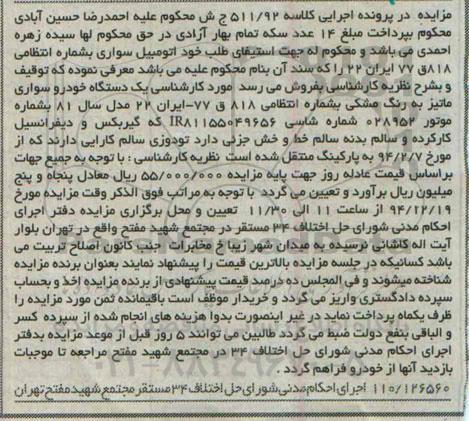 مزایده در پرونده اجرایی کلاسه ۵۱۱/۹۲ ج ش محکوم علیه احمدرضا حسین آبادی
محکوم بپرداخت مبلغ ۱۴ عدد سکه تمام بهار آزادی در حق محکوم لها سیده زهره
احمدی می باشد و محکوم له جهت استیفای طلب خود اتومبیل سواری بشماره انتظامی
۸۱۸ق ۷۷ ایران ۲۲ را که سند آن بنام محکوم علیه می باشد معرفی نموده که توقیف
و بشرح نظریه کارشناسی بفروش می رسد مورد کارشناسی یک دستگاه خودرو سواری
ماتیز به رنگ مشکی بشماره انتظامی ۸۱۸ ق ۷۷-ایران ۲۲ مدل سال ۸۱ بشماره
موتور ۰۲۸۹۵۲ شماره شاسی IR۸۱۱۵۵۰۴۹۶۵۶ که گیربکس و دیفرانسیل
کارکرده و سالم بدنه سالم خط و خش جزئی دارد تودوزی سالم کارایی دارند که از
مورخ ۹۴/۲/۷ به پارکینگ منتقل شده است نظریه کارشناسی : با توجه به جمیع جهات
براساس قیمت عادله روز جهت پایه مزایده ۵۵/۰۰۰/۰۰۰ ریال معادل پنجاه و پنج
میلیون ریال برآورد و تعیین می گردد با توجه به مراتب فوق الذکر وقت مزایده مورخ
۹۴/۱۲/۱۹ از ساعت ۱۱ الی ۱۱/۳۰ تعیین و محل برگزاری مزایده دفتر اجرای
احکام مدنی شورای حل اختلاف ۳۴ مستقر در مجتمع شهید مفتح واقع در تهران بلوار
آیت اله کاشانی نرسیده به میدان شهر زیبا خ مخابرات جنب کانون اصلاح تربیت می
باشد کسانیکه در جلسه مزایده بالاترین قیمت را پیشنهاد نمایند بعنوان برنده مزایده
شناخته میشوند و فی المجلس ده درصد قیمت پیشنهادی از برنده مزایده اخذ و بحساب
سپرده دادگستری واریز می گردد و خریدار موظف است باقیمانده ثمن مورد مزایده را
ظرف یکماه پرداخت نماید در غیر اینصورت بدوا هزینه های انجام شده از سپرده کسر
و الباقی بنفع دولت ضبط می گردد طالبین می توانند ۵ روز قبل از موعد مزایده بدفتر
اجرای احکام مدنی شورای حل اختلاف ۳۴ در مجتمع شهید مفتح مراجعه تا موجبات
بازدید آنها از خودرو فراهم گردد .
۱۱۰/۱۲۶۵۶۰ اجرای احکام مدنی شورای حل اختلاف ۳۴ مستقر مجتمع شهید مفتح تهران